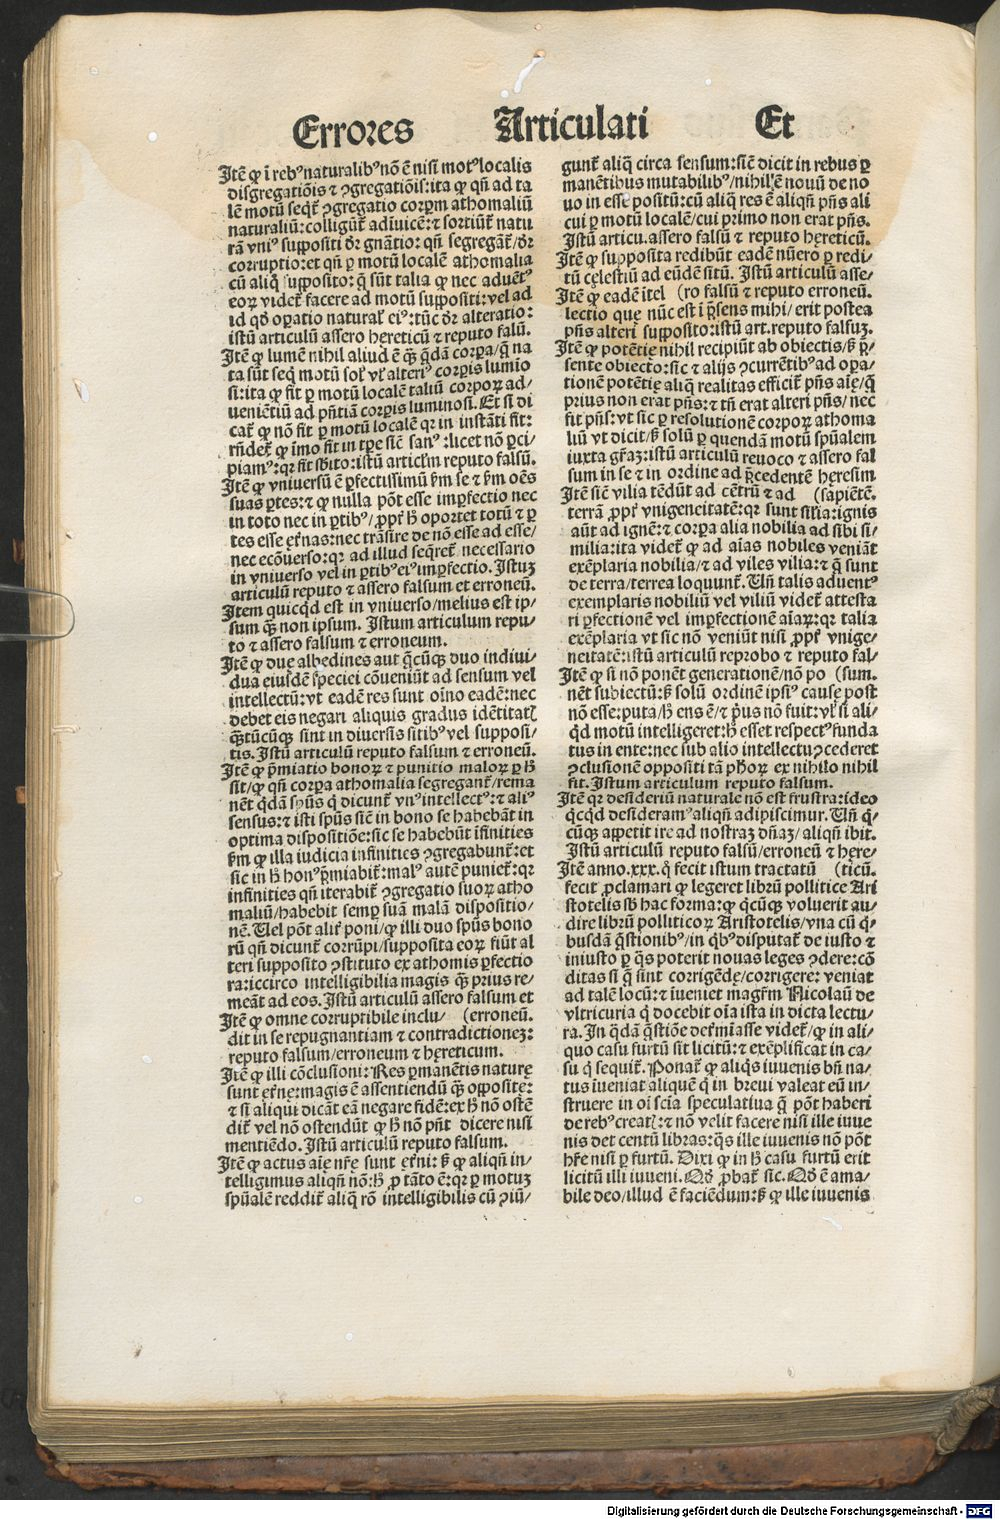 Errores Articulati Et
Itē ꝙ ī rebꝰ naturalibꝰ nō ē nisi motꝰ localis
disgregatiōis ⁊ ꝯgregatiōis: ita ꝙ qñ ad ta
lē motū seqt̄ ꝯgregatio corꝑm athomaliū
naturaliū: colligūt̄ adīuicē: ⁊ sortiūt̄ natu
rā vniꝰ suppositi dr̄ gñatio: qñ segregāt̄/ dr̄
corruptio: et qñ ꝑ motū localē athomalia
cū aliq̄ supposito: q̄ sūt talia ꝙ nec aduētꝰ
eoꝝ videt̄ facere ad motū suppositi: vel ad
id qd̄ oꝑatio natural̄ eiꝰ: tūc dr̄ alteratio:
istū articulū assero hereticū ⁊ reputo falū.
Itē ꝙ lumē nihil aliud ē qȝ̄ q̄dā corꝑa/ q̄ na
ta sūt seq̄ motū sol̄ vl̄ alteriꝰ corꝑis lumīo
si: ita ꝙ fit ꝑ motū localē taliū corpoꝝ ad/
ueniētiū ad pñtiā corꝑis luminosi. Et si di
cat̄ ꝙ nō fit ꝑ motū localē qꝛ in instāti fit:
rñdet̄ ꝙ īmo fit in tꝑe siē sanꝰ: licet nō ꝑci/
piamꝰ: qꝛ fit sb̄ito: istū articl̄m reputo falsū.
Itē ꝙ vniuersū ē ꝑfectissimū ẜm se ⁊ ẜm oēs
suas ꝑtes: ⁊ ꝙ nulla pōt esse imꝑfectio nec
in toto nec in ꝑtibꝰ/ ꝓpt̄ h̄ oportet totū ⁊ ꝑ
tes esse et̄nas: nec trāsire de nō esse ad esse/
nec ecōuerso: qꝛ ad illud seq̄ret̄ necessario
in vniuerso vel in ꝑtibꝰ eiꝰ imꝑfectio. Istuꝫ
articulū reputo ⁊ assero falsum et erroneū.
Item quicqd̄ est in vniuerso/ melius est ip/
sum qȝ̄ non ipsum. Istum articulum repu/
to ⁊ assero falsum ⁊ erroneum.
Itē ꝙ due albedines aut q̄cūqȝ duo indiui/
dua eiusdē speciei cōueniūt ad sensum vel
intellectū: vt eadē res sunt oīno eadē: nec
debet eis negari aliquis gradus idētitat̄
qȝ̄tūcūqȝ sint in diuersis sitibꝰ vel supposi/
tis. Istū articulū reputo falsum ⁊ erroneū.
Itē ꝙ p̄miatio bonoꝝ ⁊ punitio maloꝝ ꝑ h̄
sit/ ꝙ qñ corꝑa athomalia segregant̄/ rema
nēt q̄dā sp̄ūs q̄ dicunt̄ vnꝰ intellectꝰ: ⁊ aliꝰ
sensus: ⁊ isti sp̄ūs siē in bono se habebāt in
optima dispositiōe: sic se habebūt īfinities
ẜm ꝙ illa iudicia infinities ꝯgregabunt̄: et
sic in h̄ honꝰ p̄miabit̄: malꝰ autē puniet̄: qꝛ
infinities qñ iterabit̄ ꝯgregatio suoꝝ atho
maliū/ habebit semꝑ suā malā dispositio/
nē. Uel pōt alit̄ poni/ ꝙ illi duo sp̄ūs bono
rū qñ dicunt̄ corrūpi/ supposita eoꝝ fiūt al
teri supposito ꝯstituto ex athomis ꝑfectio
ra: iccirco intelligibilia magis qȝ̄ prius re/
meāt ad eos. Istū articulū assero falsum et
Itē ꝙ omne corruptibile inclu/ (erroneū.
dit in se repugnantiam ⁊ contradictioneꝫ:
reputo falsum/ erroneum ⁊ hęreticum.
Itē ꝙ illi cōclusioni: Res ꝑmanētis naturę
sunt et̄nę: magis ē assentiendū qȝ̄ opposite:
⁊ si aliqui dicāt eā negare fidē: ex h̄ nō ostē
dit̄ vel nō ostendūt ꝙ h̄ nō pñt dicere nisi
mentiēdo. Istū articulū reputo falsum.
Itē ꝙ actus aīę nr̄ę sunt et̄ni: ẜ ꝙ aliqñ in/
telligimus aliqñ nō: h̄ ꝓ tāto ē: qꝛ ꝑ motuꝫ
sp̄ūalē reddit̄ aliq̄ rō intelligibilis cū ꝯiū/
gunt̄ aliq̄ circa sensum: siē dicit in rebus ꝑ
manētibus mutabilibꝰ/ nihil ē nouū de no
uo in esse positū: cū aliq̄ res ē aliqñ pñs ali
cui ꝑ motū localē/ cui primo non erat pñs.
Istū articu. assero falsū ⁊ reputo hęreticū.
Itē ꝙ supposita redibūt eadē nūero ꝑ redi/
tū cęlestiū ad eūdē sitū. Istū articulū asse/
Itē ꝙ eadē ītel (ro falsū ⁊ reputo erroneū.
lectio quę nūc est ī p̄sens mihi/ erit postea
pñs alteri supposito: istū art. reputo falsuꝫ.
Itē ꝙ potētię nihil recipiūt ab obiectis/ ẜ p̄/
sente obiecto: sic ⁊ alijs ꝯcurrētibꝰ ad oꝑa/
tionē potētię aliq̄ realitas efficit̄ pñs aīę/ q̄
prius non erat pñs: ⁊ tñ erat alteri pñs/ nec
fit pñs: vt sic ꝑ resolutionē corpoꝝ athoma
liū vt dicit/ ẜ solū ꝑ quendā motū sp̄ūalem
iuxta gr̄aꝫ: istū articulū reuoco ⁊ assero fal
sum in se ⁊ in ordine ad p̄cedentē hęresim
Itē siē vilia tēdūt ad cētrū ⁊ ad (sapiētē.
terrā ꝓpt̄ vnigeneitatē: qꝛ sunt sil̄ia: ignis
aūt ad ignē: ⁊ corꝑa alia nobilia ad sibi si/
milia: ita videt̄ ꝙ ad aīas nobiles veniāt
exēplaria nobilia/ ⁊ ad viles vilia: ⁊ q̄ sunt
de terra/ terrea loquunt̄. Uñ talis aduentꝰ
exemplaris nobiliū vel viliū videt̄ attesta
ri ꝑfectionē vel imꝑfectionē aīaꝝ: qꝛ talia
exēplaria vt sic nō veniūt nisi ꝓpt̄ vnige/
neitatē: istū articulū reprobo ⁊ reputo fal/
Itē ꝙ si nō ponēt generationē/ nō po (sum.
nēt subiectū: ẜ solū ordinē ipsiꝰ causę post
nō esse: puta/ h̄ ens ē/ ⁊ p̄us nō fuit: vl̄ si ali/
qd̄ motū intelligeret: h̄ esset respectꝰ funda
tus in ente: nec sub alio intellectu ꝯcederet
ꝯclusionē oppositi tā ph̄oꝝ ex nihilo nihil
fit. Istum articulum reputo falsum.
Itē qꝛ desideriū naturale nō est frustra: ideo
qcq̄d desideramꝰ aliqñ adipiscimur. Uñ q̄/
cūqȝ appetit ire ad nostraꝫ dñaꝫ/ aliqñ ibit.
Istū articulū reputo falsū/ erroneū ⁊ hęre/
Itē anno. xxx. q̄ fecit istum tractatū (ticū.
fecit ꝓclamari ꝙ legeret librū pollitice Ari
stotelis sb̄ hac forma: ꝙ q̄cūqȝ voluerit au/
dire librū polliticoꝝ Aristotelis/ vna cū q̄/
busdā q̄stionibꝰ/ in qb̄ꝰ disputat̄ de iusto ⁊
iniusto ꝑ q̄s poterit nouas leges ꝯdere: cō
ditas si q̄ sint corrigēdę/ corrigere: veniat
ad talē locū: ⁊ īueniet magr̄m Nicolaū de
vltricuria q̄ docebit oīa ista in dicta lectu/
ra. In q̄dā q̄stiōe det̄mīasse videt̄/ ꝙ in ali/
quo casu furtū sit licitū: ⁊ exēplificat in ca/
su q̄ sequit̄. Ponat̄ ꝙ aliq̄s iuuenis bñ na/
tus īueniat aliquē q̄ in breui valeat eū in/
struere in oī scīa speculatiua q̄ pōt haberi
de rebꝰ creat̄: ⁊ nō velit facere nisi ille iuue
nis det centū libras: q̄s ille iuuenis nō pōt
hr̄e nisi ꝑ furtū. Dixi ꝙ in h̄ casu furtū erit
licitū illi iuueni. Qd̄ ꝓbat̄ sic. Qd̄ ē ama/
bile deo/ illud ē faciēdum: ẜ ꝙ ille iuuenis
Digitalisierung gefördert durch die Deutsche Forschungsgemeinschaft - DFG